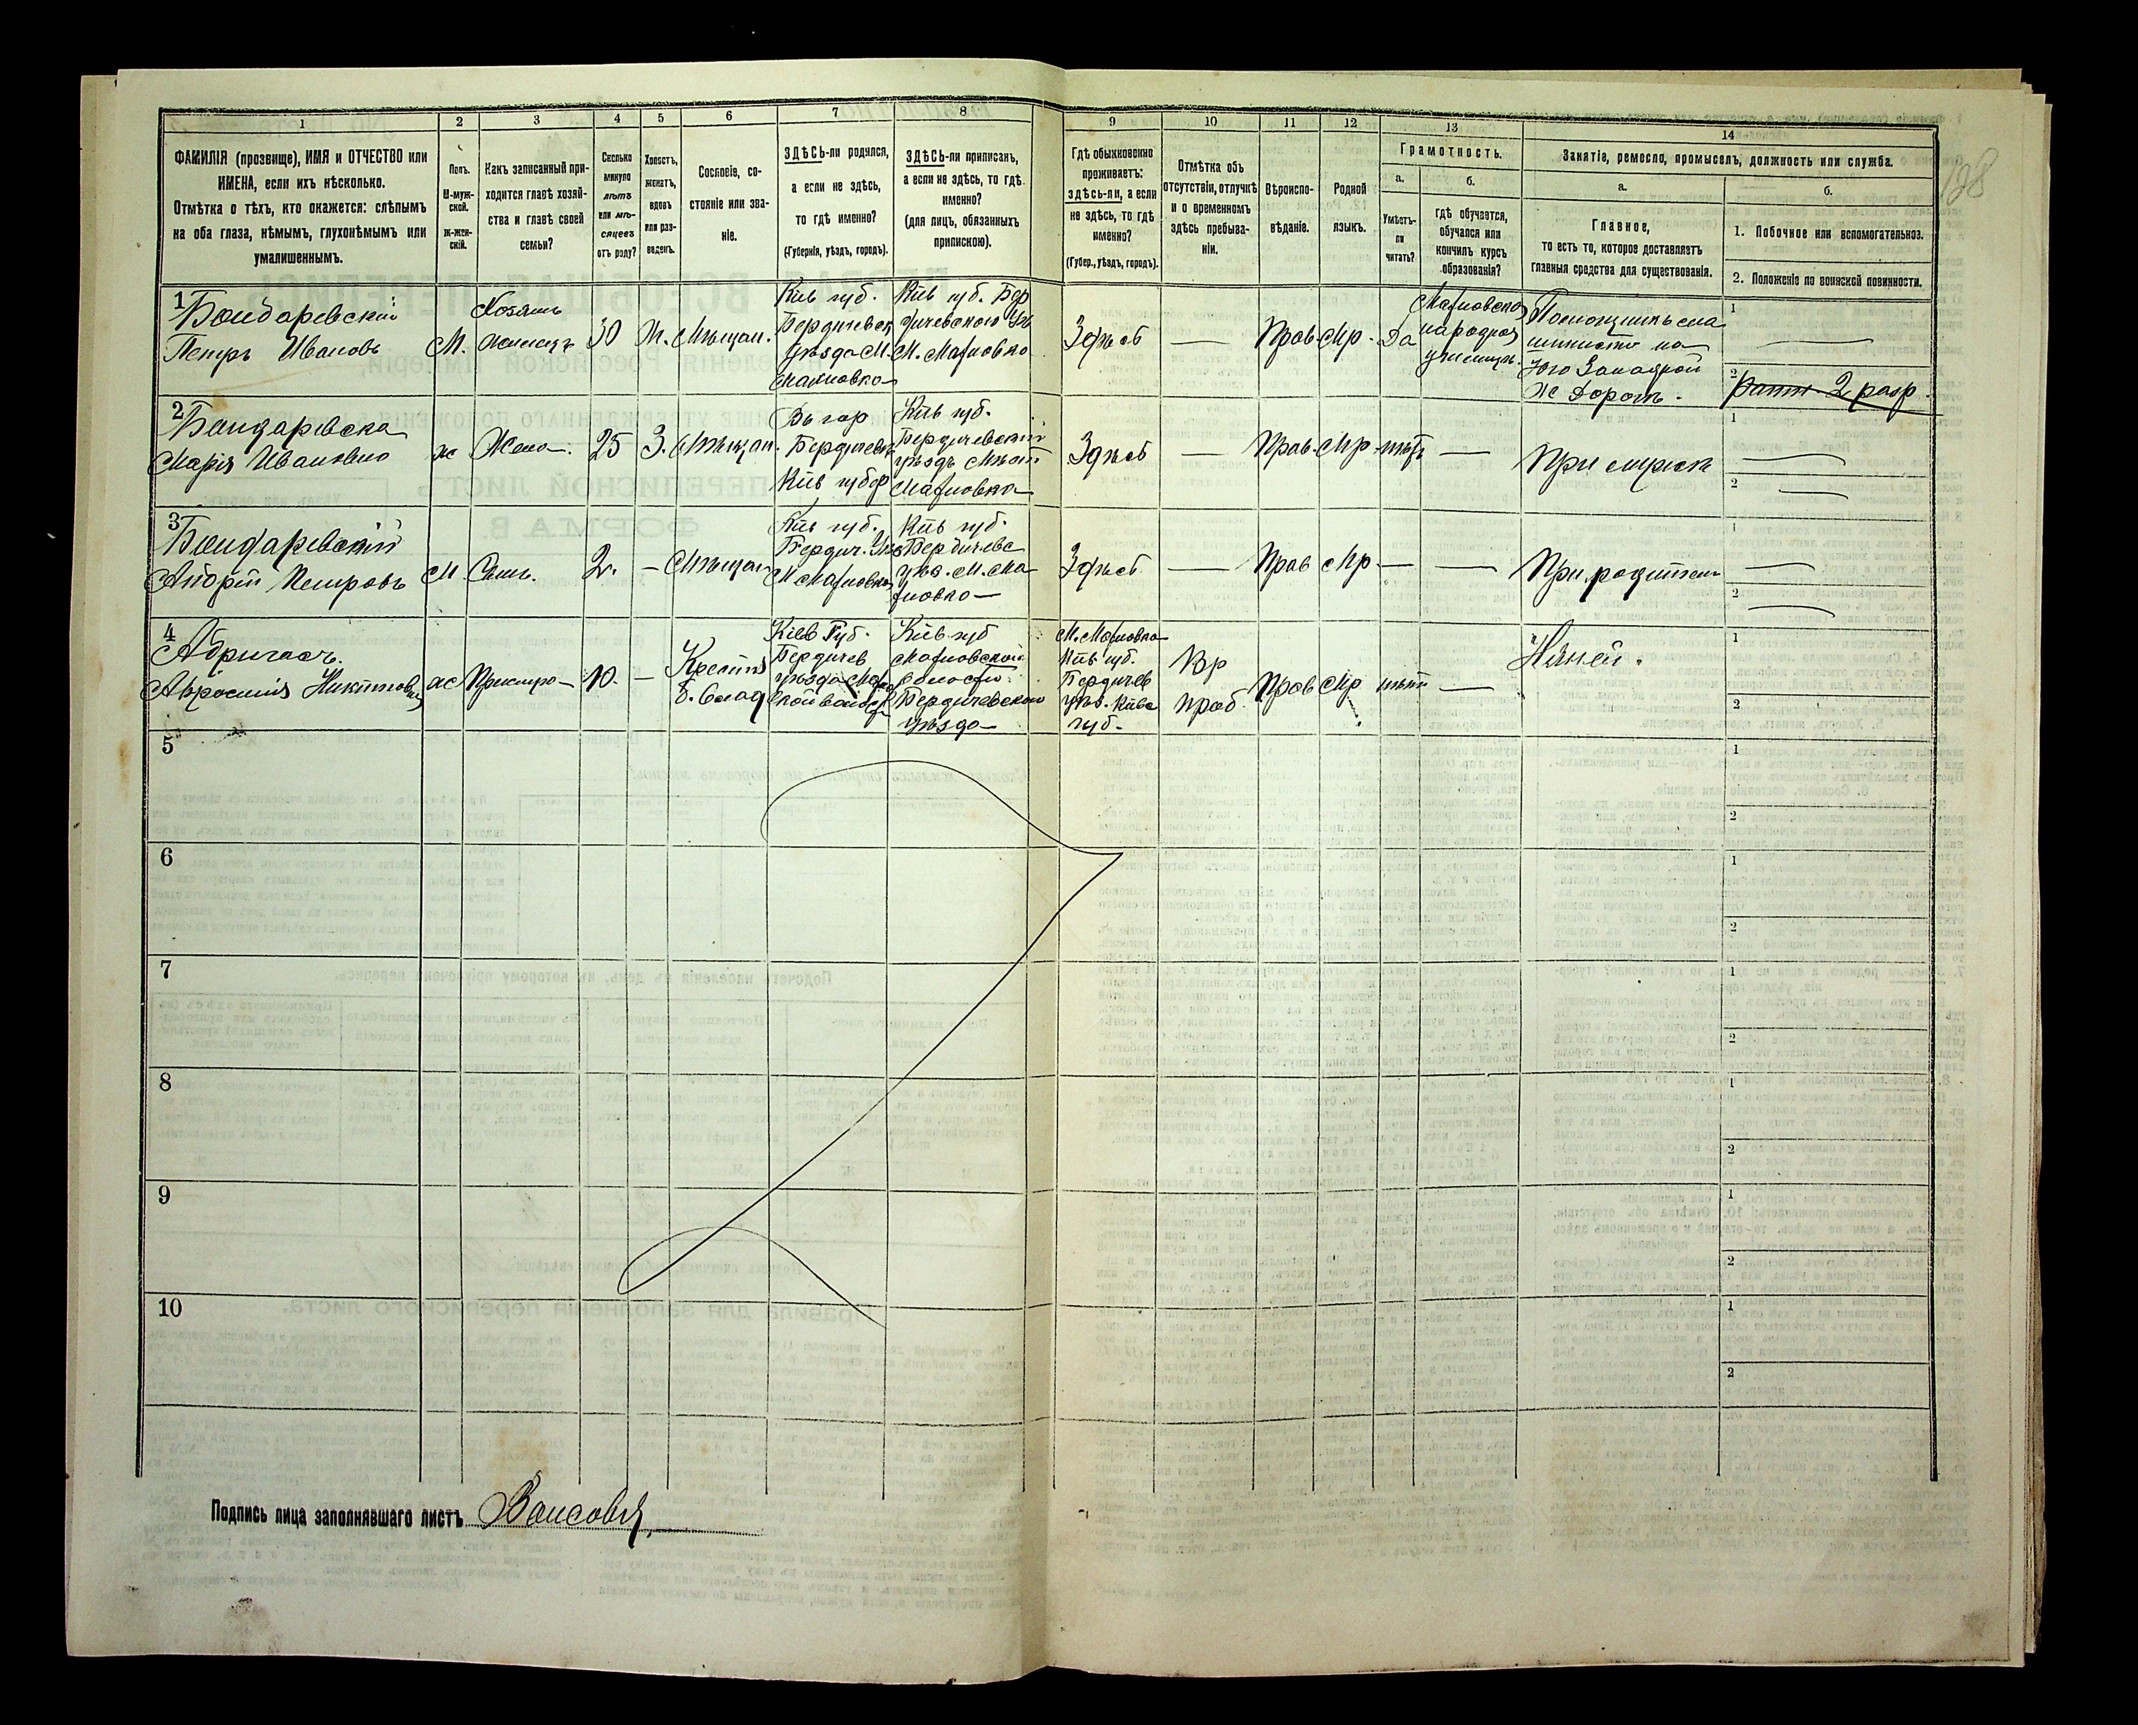 1 2 3 4 5 6 7 8 9 10 11 12 13 14
ФАМИЛІЯ (прозвище), ИМЯ и ОТЧЕСТВО или
ИМЕНА, если ихъ нѣсколько.
Отмѣтка о тѣхъ, кто окажется: слѣпымъ
на оба глаза, нѣмымъ, глухонѣмымъ или
умалишеннымъ.
Полъ.
М-муж-
ской.
Ж-жен-
скій.
Какъ записанный при-
ходится главѣ хозяй-
ства и главѣ своей
семьи?
Сколько
минуло
лѣтъ
или мѣ-
сяцевъ
отъ роду?
Холостъ,
женатъ,
вдовъ
или раз-
веденъ.
Сословіе, со-
стояніе или зва-
ніе.
ЗДѢСЬ-ли родился,
а если не здѣсь,
то гдѣ именно?
(Губернія, уѣздъ, городъ).
ЗДѢСЬ-ли приписанъ,
а если не здѣсь, то гдѣ
именно?
(для лицъ, обязанныхъ
припискою).
Гдѣ обыкновенно
проживаетъ:
здѣсь-ли, а если
не здѣсь, то гдѣ
именно?
(Губер., уѣздъ, городъ).
Отмѣтка объ
отсутствіи, отлучкѣ
и о временномъ
здѣсь пребыва-
ніи.
Вѣроиспо-
вѣданіе.
Родной
языкъ.
Грамотность.
а.
Умѣетъ-
ли
читать?
б.
гдѣ обучается,
обучался или
кончилъ курсъ
образованія?
Занятіе, ремесло, промыселъ, должность или служба.
а.
Главное,
то есть то, которое доставляетъ
главныя средства для существованія.
б.
1. Побочное или вспомогательное.
2. Положеніе по воинской повинности.
128
1
Бондаревскій
Петръ Ивановъ
М.
Хозяинъ
30
Ж.
Мѣщан.
Кіев губ.
Бердичевск
уѣзда М.
Махновка
Кіев губ. Бер
дичевскою Уѣ
М. Махновка
Здѣсь
—
Прав
Мр.
Да
Махновско
народное
училище
Помощникъ ма
шиниста на
Юго Западной
Ж Дорогѣ.
1 —
2 Ратн 2 разр
2
Бондаревска
Марія Ивановна
ж
Жена.
25
З.
Мѣщан.
Въ гор
Бердичевѣ
Кіев губер
Кіев губ.
Бердичевскій
уѣздъ Мѣст
Махновка
Здѣсь
—
Прав.
Мр.
нѣтъ
—
При мужѣ
1 —
2 —
3
Бондаревскій
Андрій Петровъ
М
Сынъ.
2.
—
Мѣщан
Кіев губ.
Бердич. Уѣз
М Махновка
Кіев губ.
Бердичевс
уѣз. М. Ма
хновка
Здѣсь
—
Прав
Мр.
—
—
При родител
1 —
2 —
4
Никитовна
ж
10.
—
Крестья
Кіев Губ.
Бердичев
уѣзда
Кіев губ
Махновской
волости
Бердичевскаго
уѣзда
М. Махновка
Кіев губ.
Бердичев
уѣз. Кіевс
губ.
Вр
преб.
Прав
Мр
нѣтъ
—
Няней.
1
2
5
1
2
6
1
2
7
1
2
8
1
2
9
1
2
10
1
2
Подпись лица заполнявшаго листъ